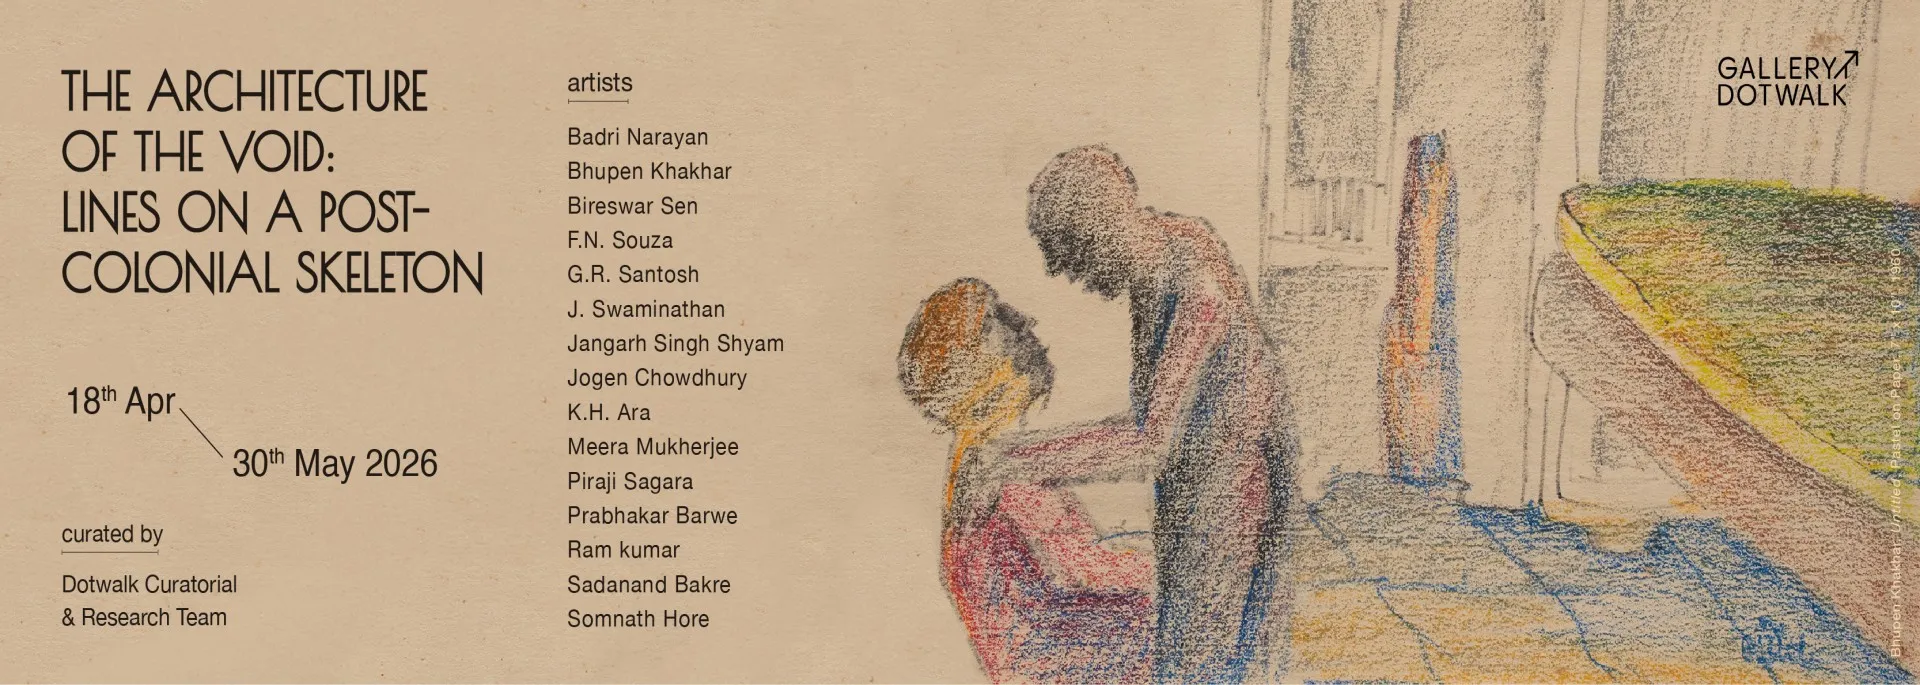 THE ARCHITECTURE
OF THE VOID:
LINES ON A POST-
COLONIAL SKELETON
18th Apr
30th May 2026
curated by
Dotwalk Curatorial
& Research Team
artists
Badri Narayan
Bhupen Khakhar
Bireswar Sen
F.N. Souza
G.R. Santosh
J. Swaminathan
Jangarh Singh Shyam
Jogen Chowdhury
K.H. Ara
Meera Mukherjee
Piraji Sagara
Prabhakar Barwe
Ram kumar
Sadanand Bakre
Somnath Hore
GALLERY
DOTWALK
Bhupen Khakhar, Untitled, Pastel on Paper, 7 x 10", 1950